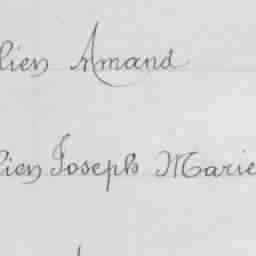 lien Amand
lien Joseph Marie